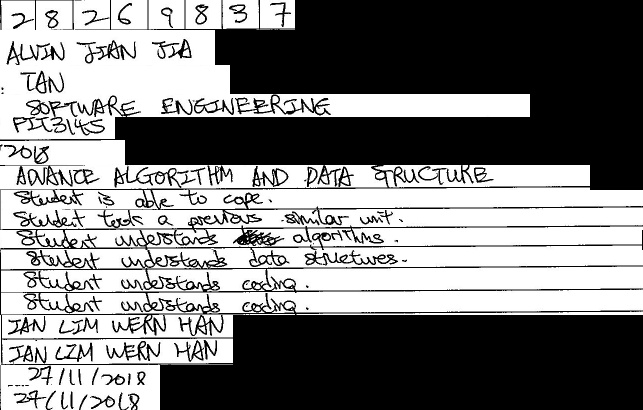 28269837
ALVIN JIAN JIA
TAN
SOFTWARE ENGINEERING
FIT3145
2018
ADVANCE ALGORITHM AND DATA STRUCTURE
Student is able to cope.
Student took a previous similar unit.
Student understands algorithms.
Student understands data structures.
Student understands coding.
Student understands coding.
IAN LIM WERN HAN
IAN LIM WERN HAN
27/11/2018
27/11/2018